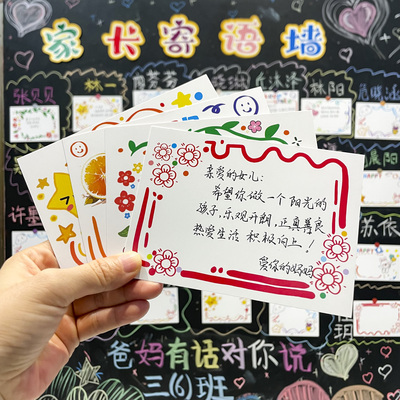 家长寄语墙
张贝贝
林一
林阳
亲爱的女儿:
希望你做一个阳光的
孩子,乐观开朗,正直善良
热爱生活 积极向上!
爱你的妈妈
爸妈有话对你说
三(6)班